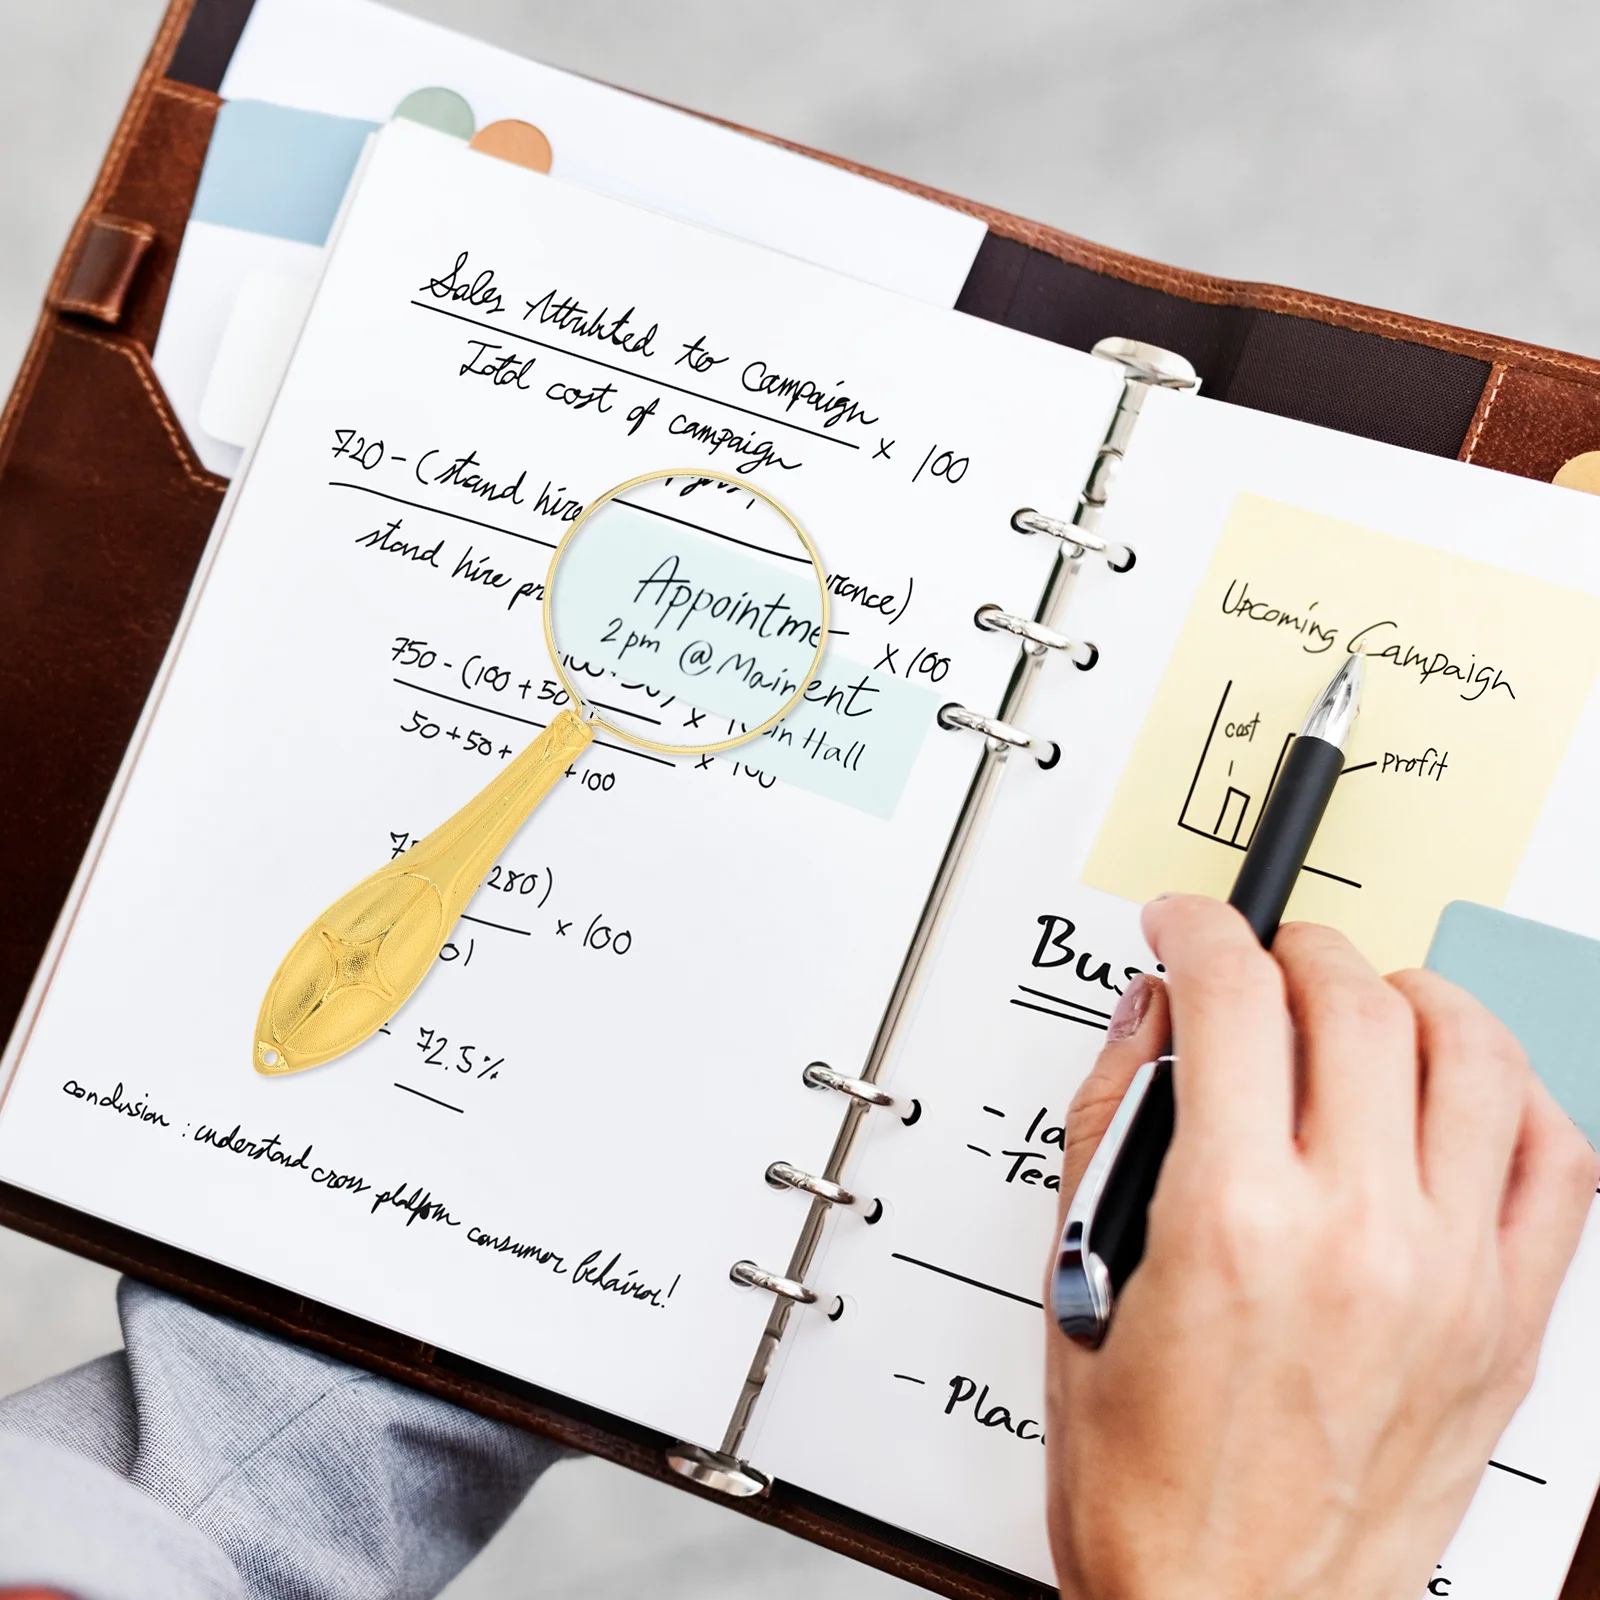 Sales Attributed to Campaign
Total cost of campaign
x 100
720 - (stand hire
urance)
stand hire pr
x 100
Appointme
2pm @ Main
ent
in Hall
750 - (100 + 50
50 + 50 +
+ 100
x 100
280)
x 100
0)
72.5%
conclusion : understand cross platform consumer behavior!
Upcoming Campaign
cost
profit
Busi
- Ta
- Tea
- Plac